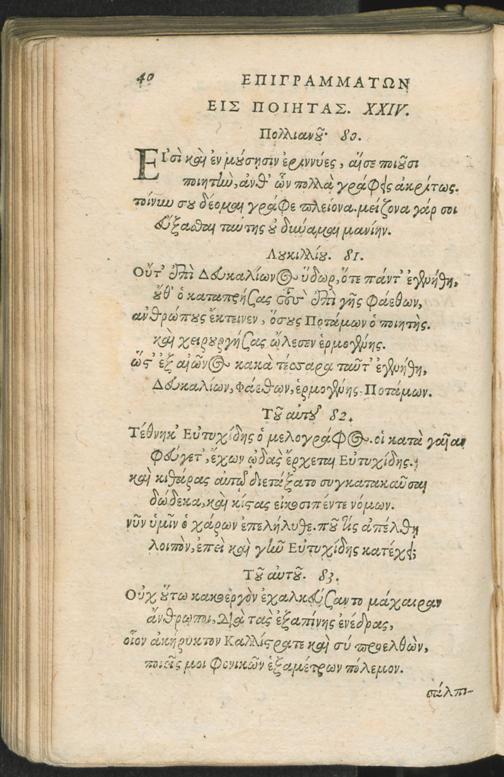 40 ΕΠΙΓΡΑΜΜΑΤΩΝ
ΕΙΣ ΠΟΙΗΤΑΣ. XXIV.
Πολλιανοῦ. 80.
Εἰσὶ καὶ ἐν μούσησιν ἐριννύες, αἵ σε ποιοῦσι
ποιητὴν, ἀνθ᾽ ὧν πολλὰ γράφεις ἀκρίτως.
τοίνυν σου δέομαι γράφε πλείονα. μείζονα γάρ σοι
εὔξασθαι ταύτης οὐ δύναμαι μανίην.
Λυκιλλίου. 81.
Οὔτ᾽ ἐπὶ Δευκαλίωνος ὕδωρ, ὅτε πάντ᾽ ἐγενήθη,
οὔθ᾽ ὁ καταπρήσας τοὺς ἐπὶ γῆς Φαέθων,
ἀνθρώπους ἔκτεινεν, ὅσους Ποτάμων ὁ ποιητής.
καὶ χειρουργήσας ὤλεσεν ἑρμογένης.
ὥς᾽ ἐξ αἰῶνος κακὰ τέσσαρα ταῦτ᾽ ἐγενήθη,
Δευκαλίων, Φαέθων, ἑρμογένης, Ποτάμων.
Τοῦ αὐτοῦ 82.
Τέθνηκ᾽ Εὐτυχίδης ὁ μελογράφος. οἱ κατὰ γαῖαν
φεύγετ᾽, ἔχων ᾠδὰς ἔρχεται Εὐτυχίδης.
καὶ κιθάρας αὐτῷ διετάξατο συγκατακαῦσαι
δώδεκα, καὶ κίστας εἰκοσιπέντε νόμων.
νῦν ὑμῖν ὁ χάρων ἐπελήλυθε. ποῦ τις ἀπέλθῃ
λοιπὸν, ἐπεὶ καὶ γῆν Εὐτυχίδης κατέχει;
Τοῦ αὐτοῦ. 83.
Οὐχ οὕτω κακοεργὸν ἐχαλκεύσαντο μάχαιραν
ἄνθρωποι, διὰ τὰς ἐξαπίνης ἐνέδρας,
οἷον ἀκήρυκτον Καλλίστρατε καὶ σὺ προελθὼν,
ποιεῖς μοι φονικῶν ἑξαμέτρων πόλεμον.
σάλπι-